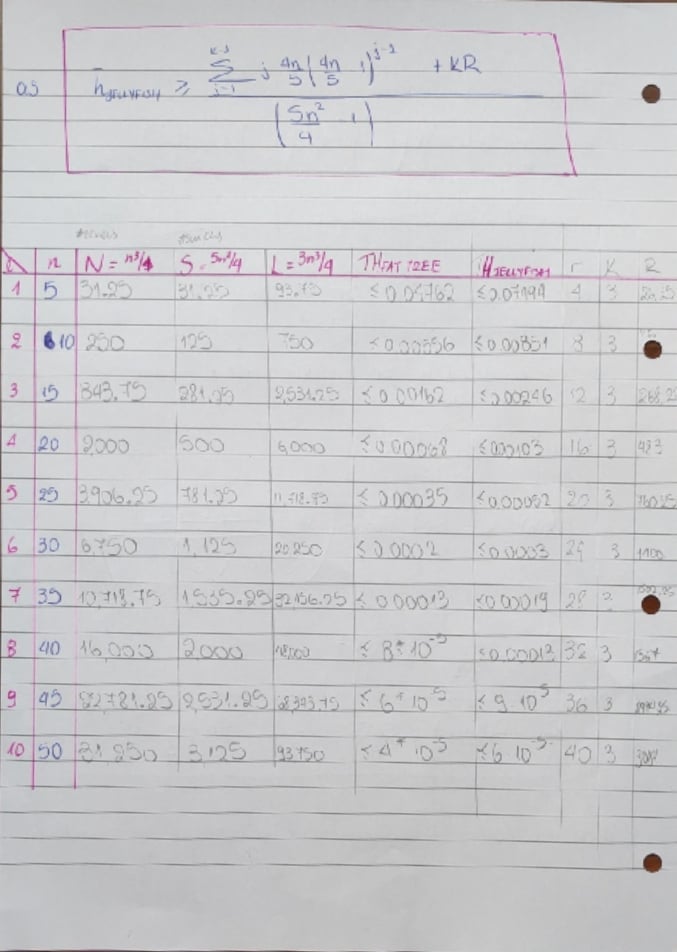 Q.5 h̄JELLYFISH ≥ ( Σ_{j=1}^{k-1} j 4n/5 (4n/5 - 1)^{j-1} + KR ) / (5n²/4 - 1)
#SERVERS #SWITCHES
n N = n³/4 S = 5n²/4 L = 3n³/4 THFAT TREE THJELLYFISH r K R
1 5 31.25 31.25 93.75 ≤ 0.04762 ≤ 0.07194 4 3
2 10 250 125 750 ≤ 0.00556 ≤ 0.00851 8 3
3 15 843.75 281.25 2,531.25 ≤ 0.00162 ≤ 0.00246 12 3 268.25
4 20 2000 500 6000 ≤ 0.00068 ≤ 0.00103 16 3 483
5 25 3906.25 781.25 11,718.75 ≤ 0.00035 ≤ 0.00052 20 3 760.25
6 30 6,750 1,125 20 250 ≤ 0.0002 ≤ 0.0003 24 3 1100
7 35 10,718.75 1,535.25 32156.25 ≤ 0.00013 ≤ 0.00019 28
8 40 16,000 2,000 48000 ≤ 8*10⁻⁵ ≤ 0.00012 32 3
9 45 22,781.25 2,531.25 68,343.75 ≤ 6*10⁻⁵ ≤ 9·10⁻⁵ 36 3
10 50 31,250 3,125 93750 ≤ 4*10⁻⁵ ≤ 6·10⁻⁵ 40 3